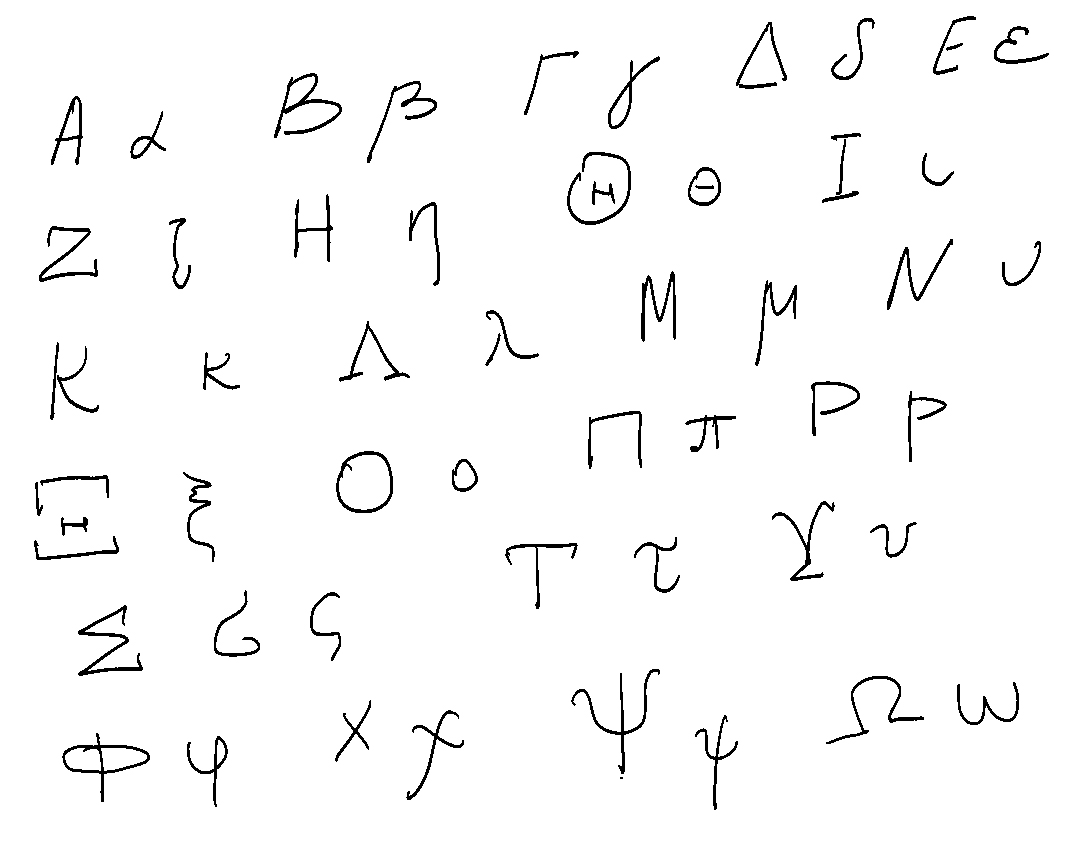 Α α Β β Γ γ Δ δ Ε ε
Ζ ζ Η η Θ θ Ι ι
Κ κ Λ λ Μ μ Ν υ
Ξ ξ Ο ο Π π Ρ ρ
Σ σ ς Τ τ Υ υ
Φ φ Χ χ Ψ ψ Ω ω